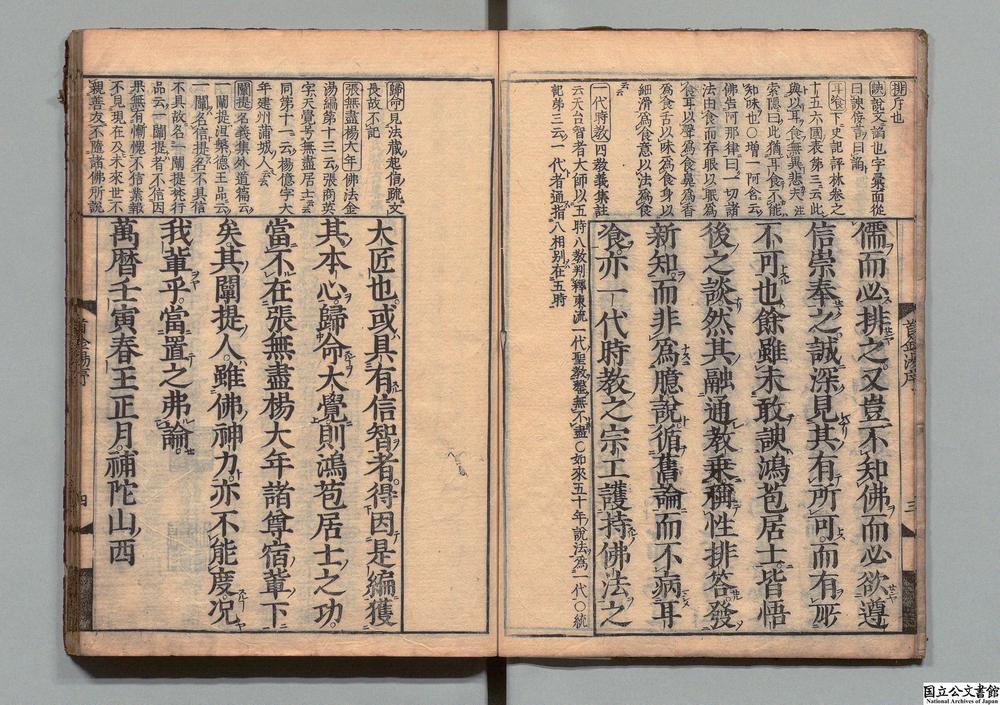 排斥也
諛說文諂也字彙面從
曰諛佞言曰諂
耳飡下史記評林卷之
十五六國表第三云此
與以耳食無異悲夫註
索隱曰此猶耳食不能
知味也○增一阿含云
佛告阿那律曰一切諸
法由食而存眼以眠為
食耳以聲為食鼻為香
為食舌以味為食身以
細滑為食意以法為食
云云
一代時教四教義集註
云天台智者大師以五時八教判釋東流一代聖教罄無不盡○如來五十年說法為一代○統
記第三云一代者通指八相別在五時
儒而必排之又豈不知佛而必欲遵
信崇奉之誠深見其有所可而有所
不可也餘雖未敢諛鴻苞居士皆悟
後之談然其融通教乗稱性排答發
新知而非為臆說循舊論而不病耳
飡亦一代時教之宗工護持佛法之
首金湯序
三
歸命見法藏起信疏文
長故不記
張無盡楊大年佛法金
湯編第十三云張商英
字天覺号無盡居士云云
同第十一云楊億字大
年建州蒲城人云云
闡提名義集外道篇云
一闡提涅槃德王品云
一闡名信提名不具信
不具故名一闡提梵行
品云一闡提者不信因
果無有慚愧不信業報
不見現在及未來世不
親善友不隨諸佛所說
大匠也或具有信智者得因是編獲
其本心歸命大覺則鴻苞居士之功
當不在張無盡楊大年諸尊宿輩下
矣其闡提人雖佛神力亦不能度况
我輩乎當置之弗論
萬曆壬寅春王正月補陀山西
四
国立公文書館
National Archives of Japan